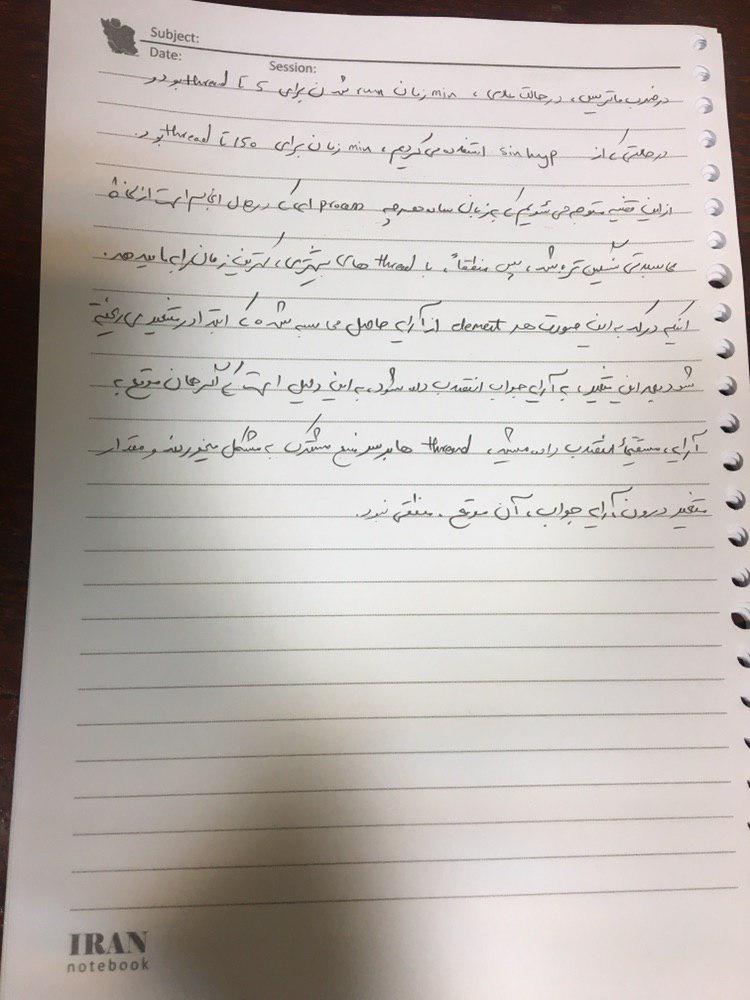 Subject:
Date:
Session:
در ضرب ماتریس، در حالت عادی، min زمان run شدن برای 5 تا thread بود و
در حالتی که از sinhyp استفاده می‌کردیم، min زمان برای 150 تا thread بود.
از این قضیه متوجه می‌شویم که به زبان ساده هر چه process ای که در حال انجام است از لحاظ
محاسباتی سنگین‌تر باشد، پس منطقاً، با thread های بیشتری، کمترین زمان را به ما میدهد.
اینکه در کد به این صورت هر element از آرایه حاصل محاسبه شده که ابتدا در متغیری ریخته
شود و بعد این متغیر، به آرایه جواب انتساب داده شود، به این دلیل است که اگر همان موقع به
آرایه، مستقیماً انتساب داده میشد، thread ها بر سر منبع مشترک به مشکل میخوردند و مقدار
متغیر درون آرایه جواب، آن موقع، منطقی نبود.
IRAN
notebook